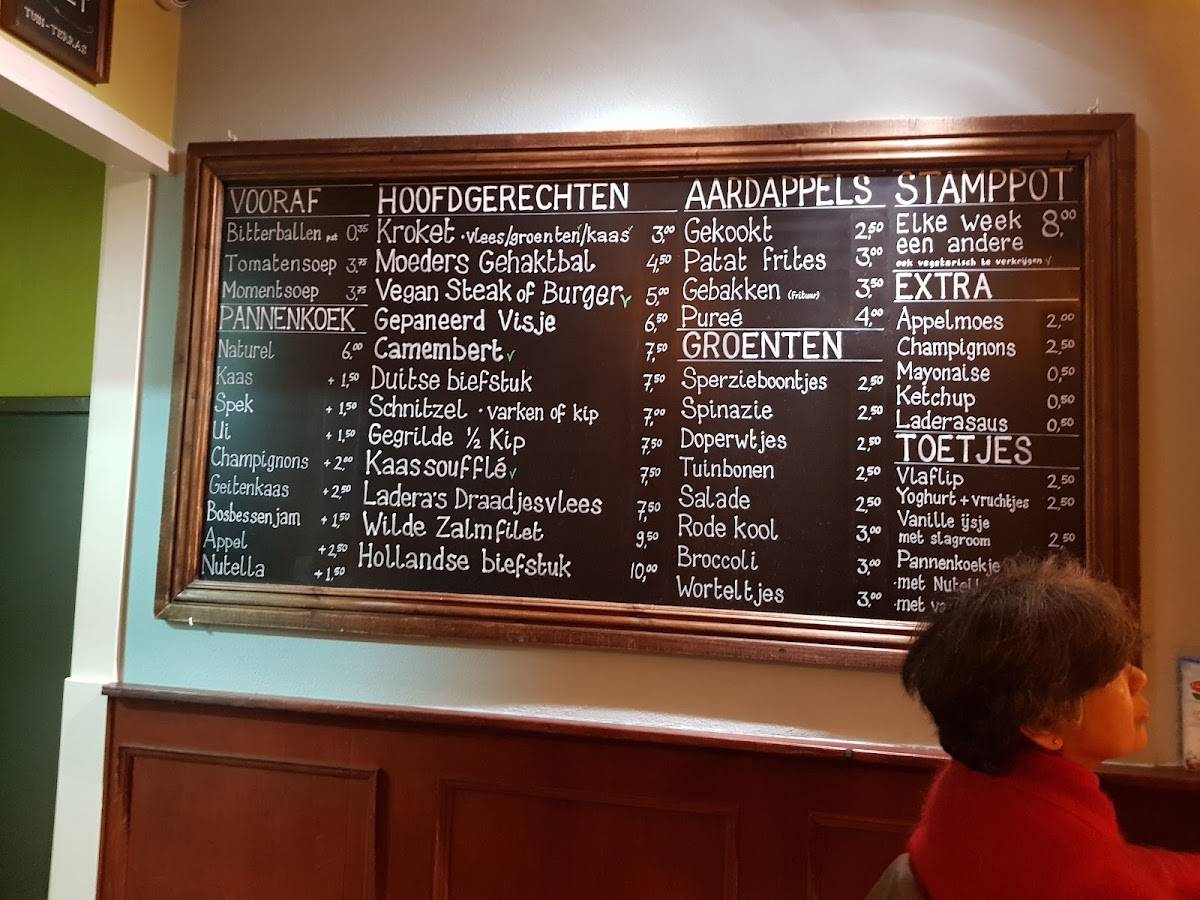 TUIN-TERRAS
VOORAF
Bitterballen 0,35
Tomatensoep 3,75
Momentsoep 3,75
PANNENKOEK
Naturel 6,00
Kaas + 1,50
Spek + 1,50
Ui + 1,50
Champignons + 2,00
Geitenkaas + 2,50
Bosbessenjam + 1,50
Appel + 2,50
Nutella + 1,50
HOOFDGERECHTEN
Kroket · vlees/groenten/kaas 3,00
Moeders Gehaktbal 4,50
Vegan Steak of Burger √ 5,00
Gepaneerd Visje 6,50
Camembert √ 7,50
Duitse biefstuk 7,50
Schnitzel · varken of kip 7,00
Gegrilde ½ Kip 7,50
Kaassoufflé √ 7,50
Ladera's Draadjesvlees 7,50
Wilde Zalmfilet 9,50
Hollandse biefstuk 10,00
AARDAPPELS
Gekookt 2,50
Patat frites 3,00
Gebakken (frituur) 3,50
Pureé 4,00
GROENTEN
Sperzieboontjes 2,50
Spinazie 2,50
Doperwtjes 2,50
Tuinbonen 2,50
Salade 2,50
Rode kool 3,00
Broccoli 3,00
Worteltjes 3,00
STAMPPOT
Elke week 8,00
een andere
ook vegetarisch te verkrijgen √
EXTRA
Appelmoes 2,00
Champignons 2,50
Mayonaise 0,50
Ketchup 0,50
Laderasaus 0,50
TOETJES
Vlaflip 2,50
Yoghurt + vruchtjes 2,50
Vanille ijsje
met slagroom 2,50
Pannenkoekje
·met
·met